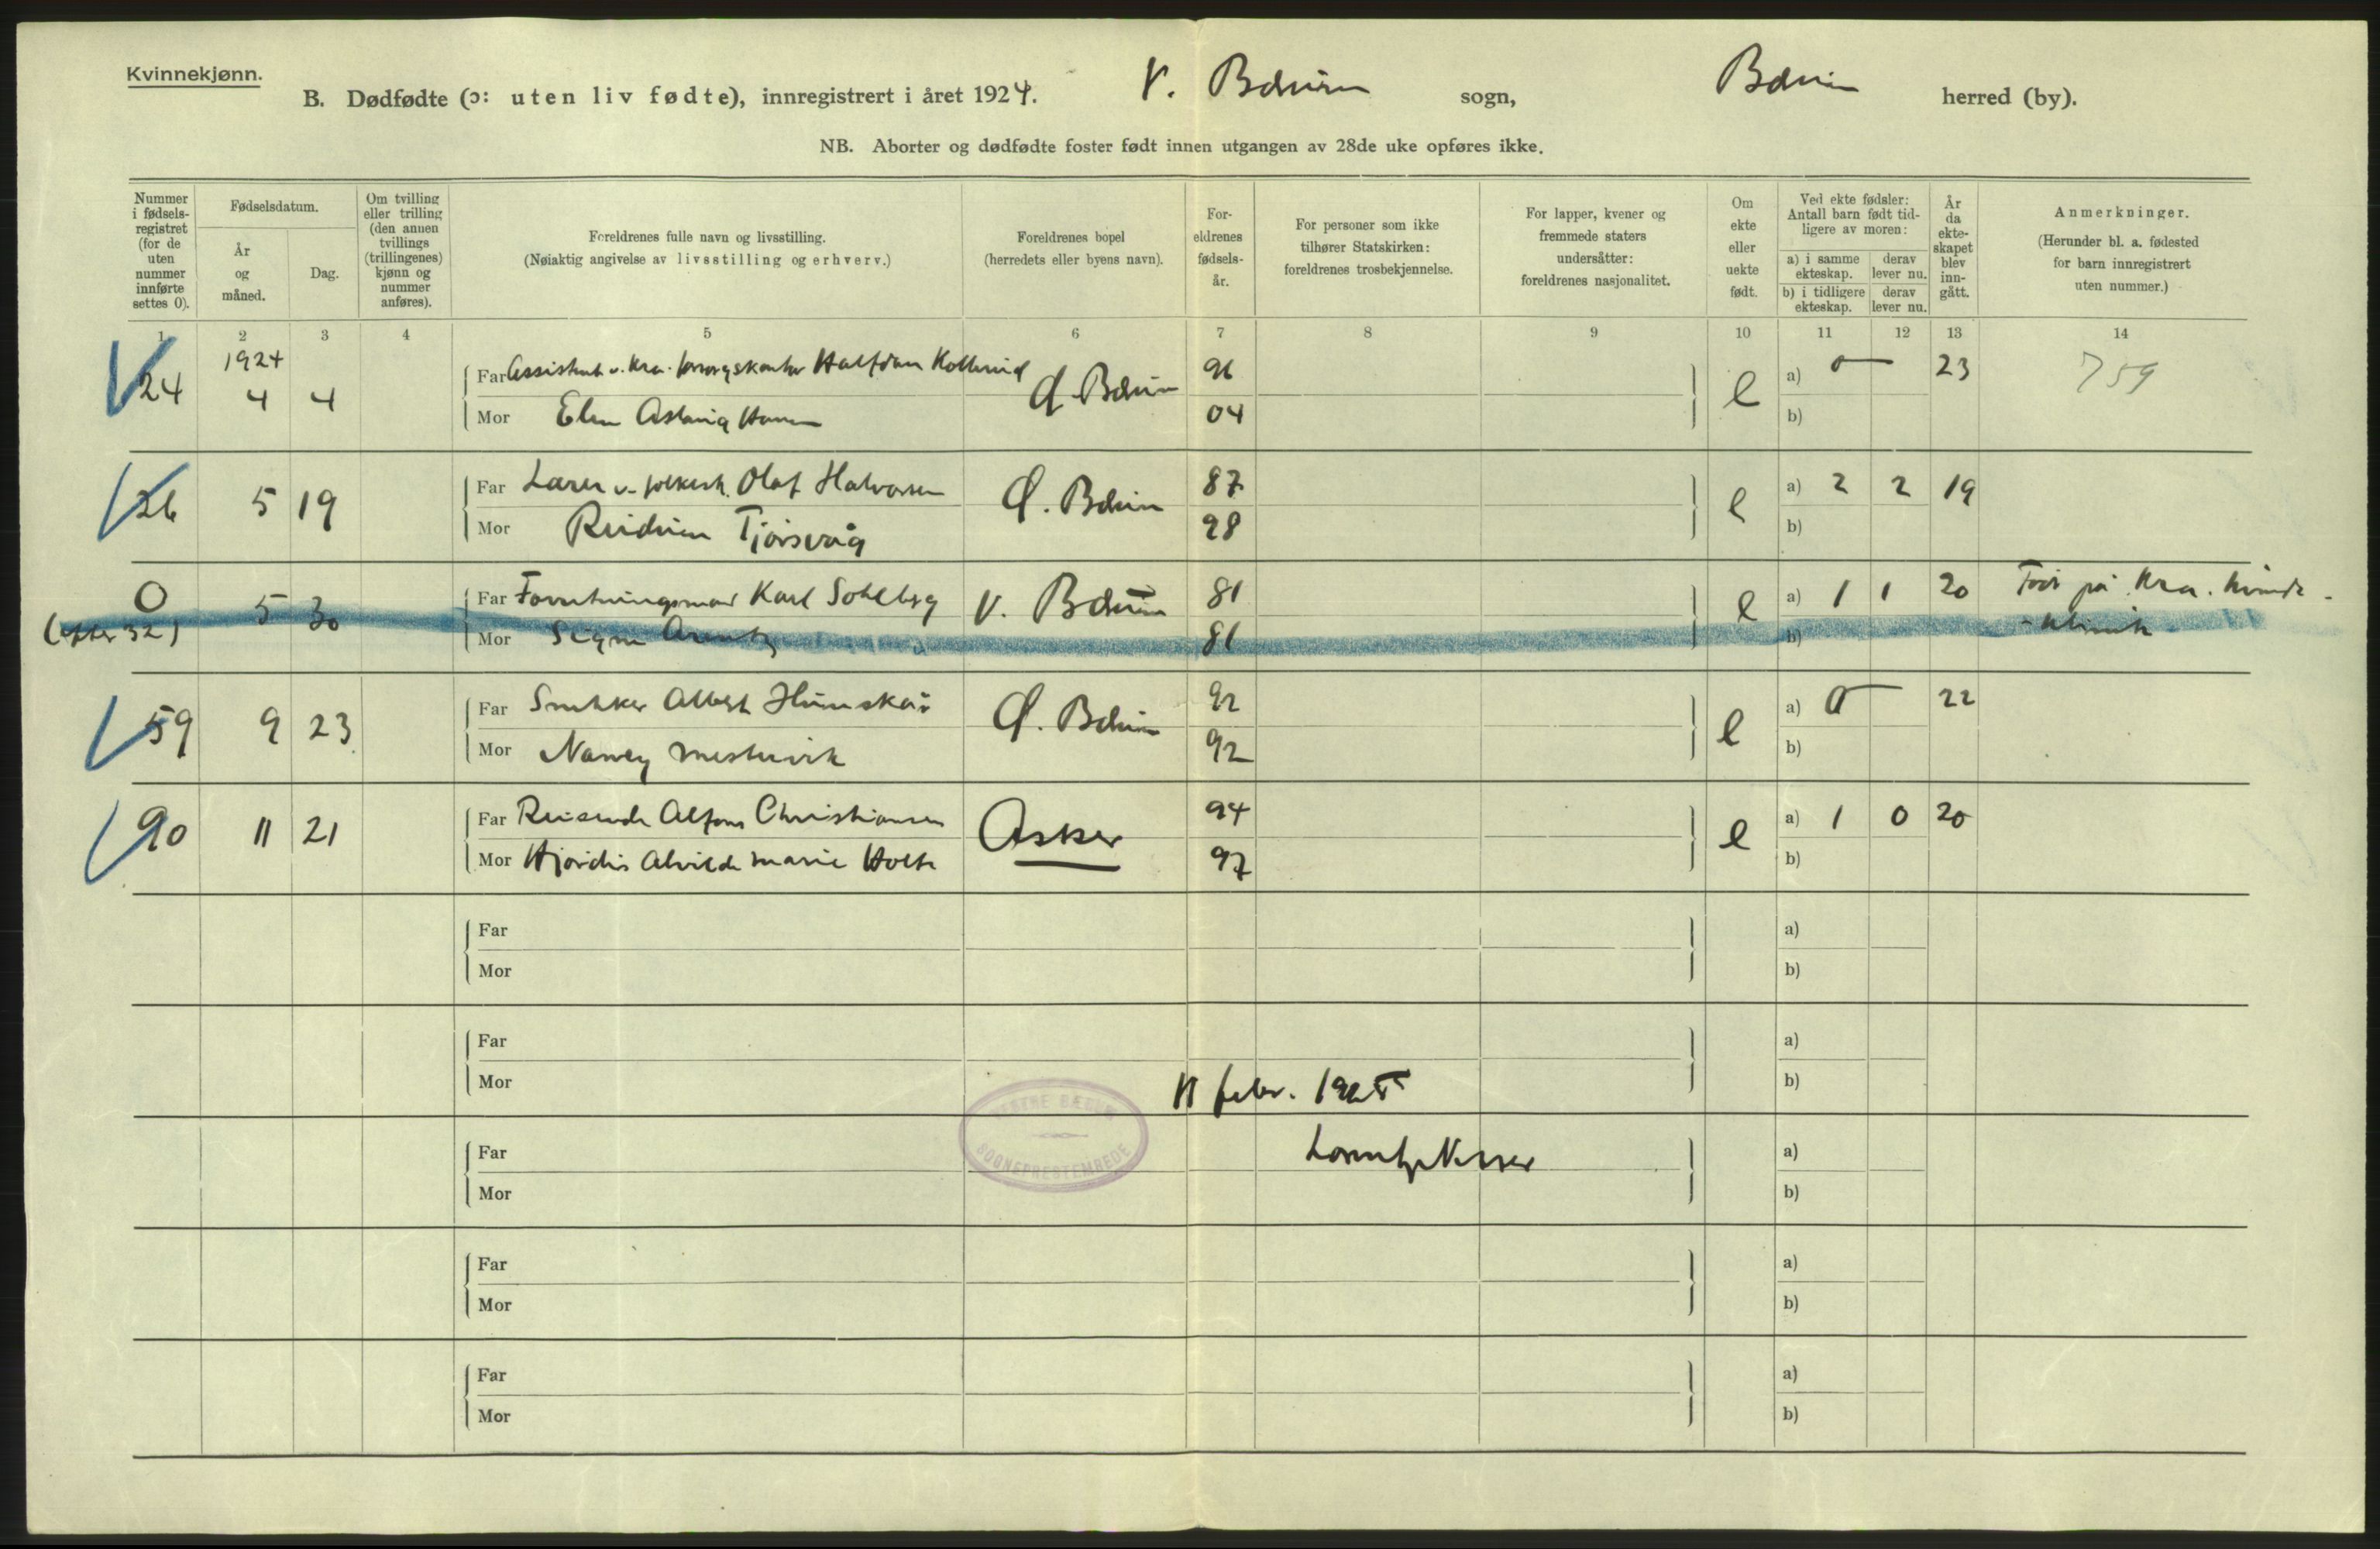 Kvinnekjønn.
B. Dødfødte (ɔ: uten liv fødte), innregistrert i året 1924. V. Bærum sogn, Bærum herred (by).
NB. Aborter og dødfødte foster født innen utgangen av 28de uke opføres ikke.
Nummer i fødsels- registret (for de uten nummer innførte settes 0).
Fødselsdatum.
År og måned.
Dag.
Om tvilling eller trilling (den annen tvillings (trillingenes) kjønn og nummer anføres).
Foreldrenes fulle navn og livsstilling.
(Nøiaktig angivelse av livsstilling og erhverv.)
Foreldrenes bopel
(herredets eller byens navn).
For- eldrenes fødsels- år.
For personer som ikke tilhører Statskirken: foreldrenes trosbekjennelse.
For lapper, kvener og fremmede staters undersåtter: foreldrenes nasjonalitet.
Om ekte eller uekte født.
Ved ekte fødsler: Antall barn født tid- ligere av moren:
a) i samme ekteskap.
derav lever nu.
b) i tidligere ekteskap.
derav lever nu.
År da ekte- skapet blev inn- gått.
Anmerkninger.
(Herunder bl. a. fødested for barn innregistrert uten nummer.)
1 2 3 4 5 6 7 8 9 10 11 12 13 14
1924
24 4 4 Far Assistent v. Kra. Halfdan 96 e a) 0 23 759
Mor Ellen Aslaug Hansen Ø. Bærum 04 b)
26 5 19 Far Lærer v. folkesk. Olaf Halvorsen Ø. Bærum 87 e a) 2 2 19
Mor Reidun Tjørsvåg 98 b)
0 5 30 Far Forretningsmand Karl Sohlberg V. Bærum 81 e a) 1 1 20 Født på Kra. kvinde-
(efter 32) Mor Signe Arentz 81 b) -klinik
59 9 23 Far Snekker Albert Ø. Bærum 92 e a) 0 22
Mor Nancy 92 b)
90 11 21 Far Reisende Alfons Christiansen Asker 94 e a) 1 0 20
Mor Hjørdis Alvilde Marie Holte 97 b)
Far a)
Mor b)
Far a)
Mor b)
11 febr. 1925
VESTRE BÆRUM
SOGNEPRESTEMBEDE
Far a)
Mor b)
Far a)
Mor b)
Far a)
Mor b)